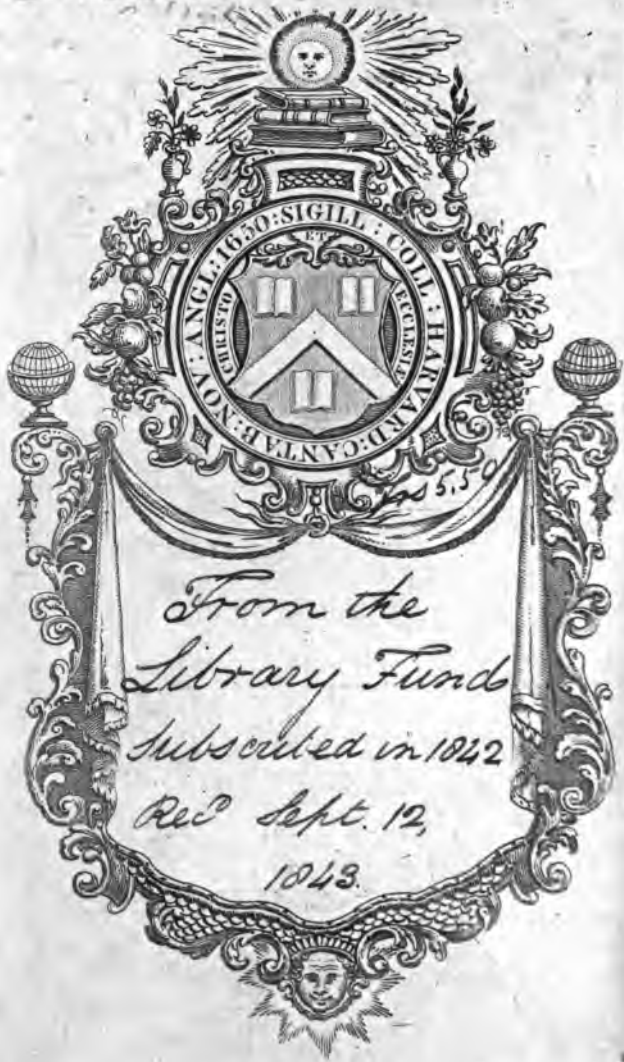 SIGILL : COLL : HARVARD : CANTAB : NOV : ANGL : 1650 :
ET
CHRISTO
ECCLESIÆ
5.50
From the
Library Fund
Subscribed in 1842
Rec'd Sept. 12,
1843.